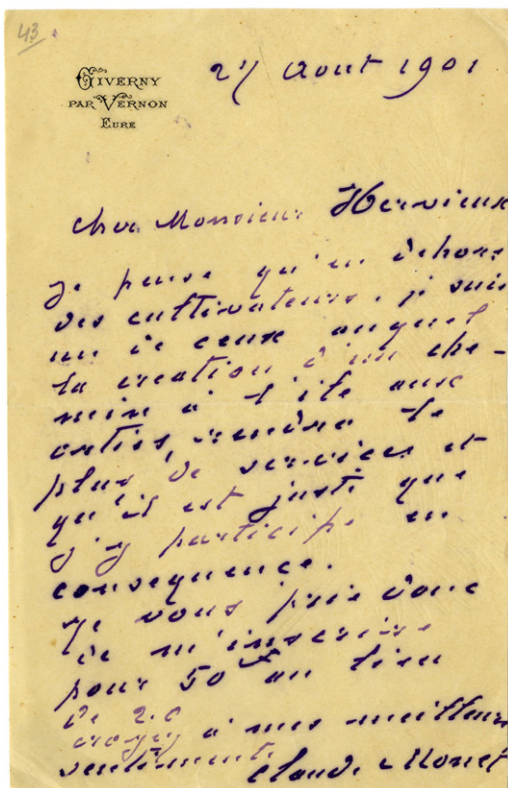 43
GIVERNY
PAR VERNON
EURE
27 Aout 1901
cher Monsieur Hervieux
Je pense qu'en dehors
des cultivateurs, je suis
un de ceux auquel
la création d'un che-
min à l'ile aux
orties, rendra le
plus de services et
qu'il est juste que
j'y participe en
consequence.
Je vous prie donc
de m'inscrire
pour 50 F au lieu
de 20
croyez à mes meilleurs
sentiments
Claude Monet